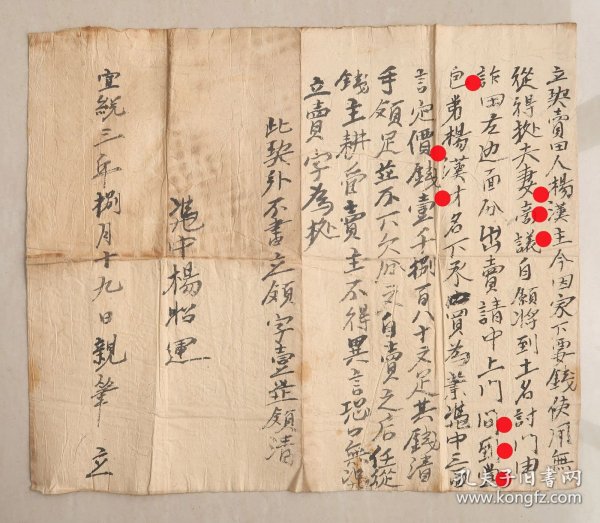 立契賣田人楊漢主今因家下要錢使用無
從得處夫妻商議自願將到土名討門車
詐田左边面分出賣請中上門問到堂
弟楊漢才名下承買為業憑中三面
言定價錢壹千捌百八十文足其錢清
手領足並不下欠分文自賣之后任從
錢主耕管賣主不得異言恐口無憑
立賣字為據
此契外不書立領字壹並領清
憑中楊昭運
宣統三年捌月十九日親筆 立
孔夫子旧书网
www.kongfz.com